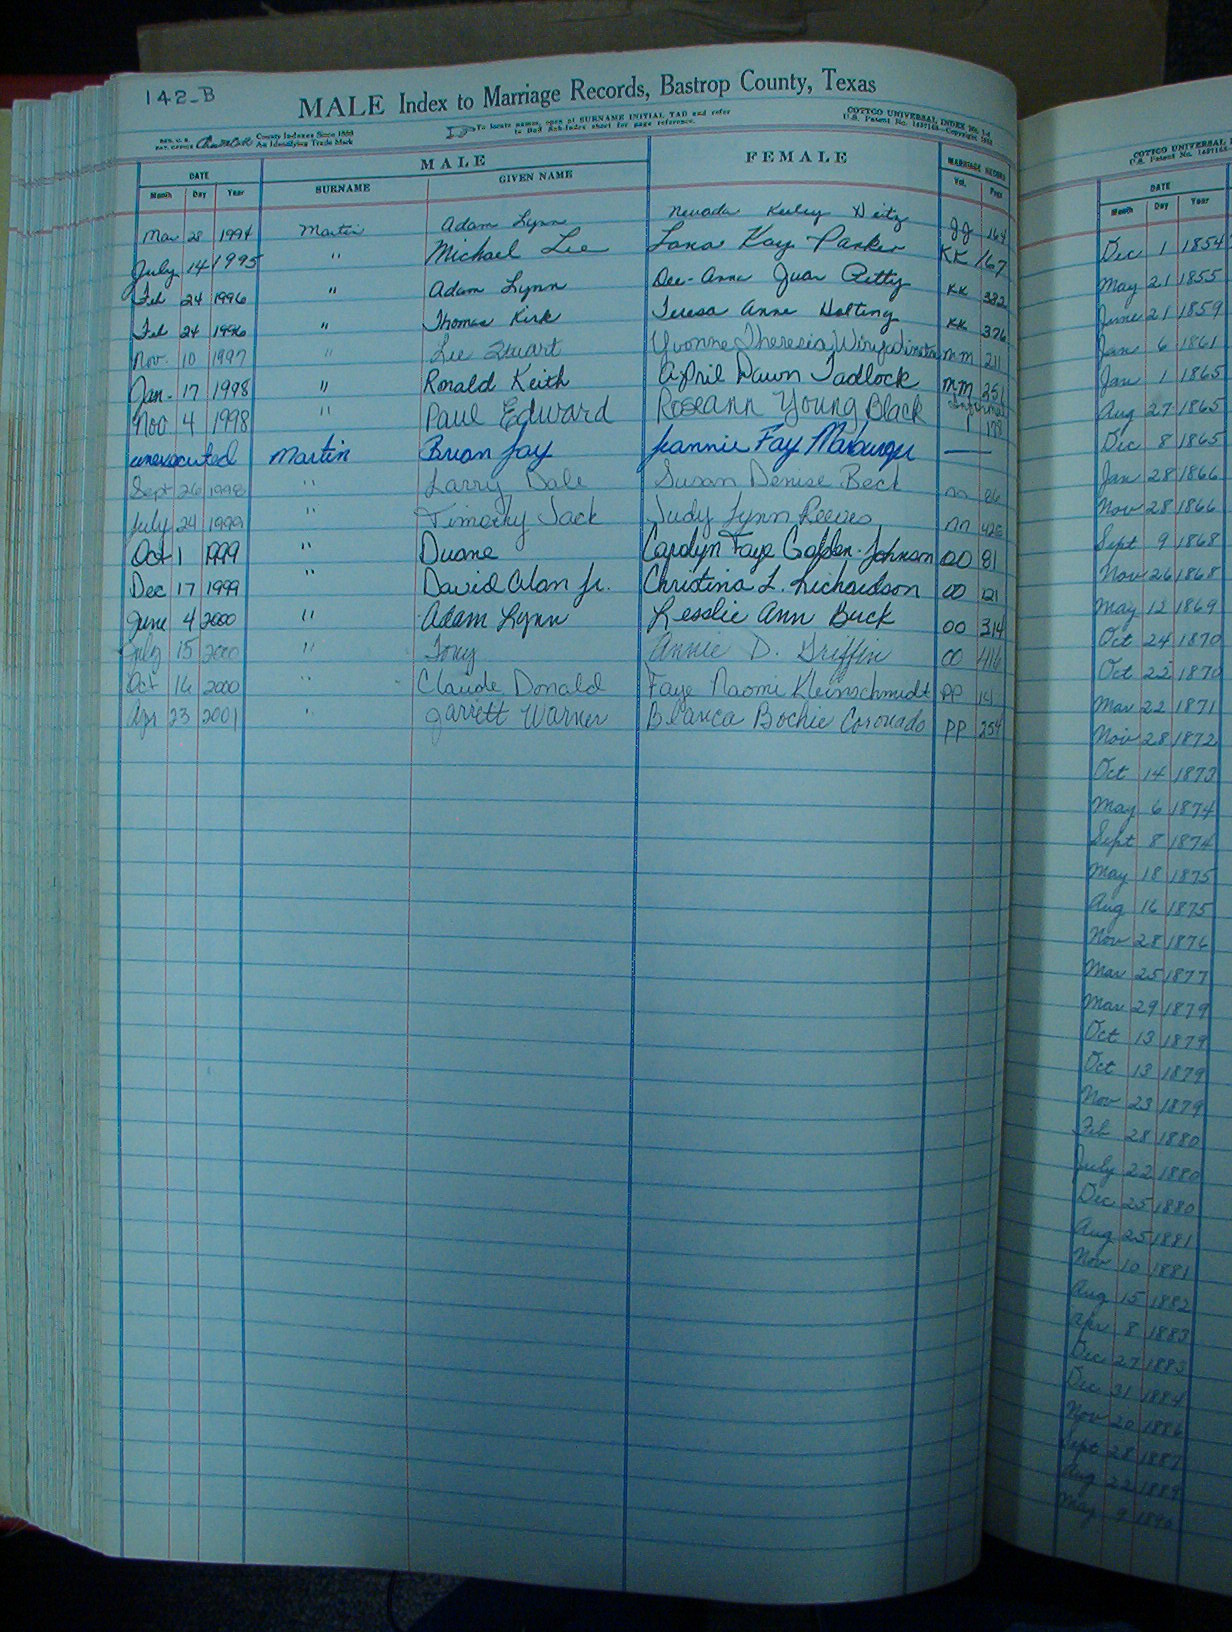 142-B
MALE Index to Marriage Records, Bastrop County, Texas
County Indexes Since 1888
An Identifying Trade Mark
To locate names, open at SURNAME INITIAL TAB and refer
to Buff Sub-Index sheet for page reference.
COTTCO UNIVERSAL INDEX
DATE MALE FEMALE MARRIAGE RECORD
Month Day Year SURNAME GIVEN NAME Vol. Page
Mar 28 1994 Martin Adam Lynn Nevada Keeley Deitz JJ 164
July 14 1995 " Michael Lee Lana Kay Parker KK 167
Feb 24 1996 " Adam Lynn Dee-Anna Juan Petty KK 382
Feb 24 1996 " Thomas Kirk Teresa Anne Holting KK 376
Nov. 10 1997 " Lee Stuart Yvonne Theresia mm 211
Jan. 17 1998 " Ronald Keith April Dawn Tadlock mm 251
Nov 4 1998 " Paul Edward Roseann Young Black Informal 1 178
unexecuted Martin Brian Jay Jeannie Fay Marburger —
Sept 26 1998 " Larry Dale Susan Denise Beck nn 86
July 24 1999 " Timothy Jack Judy Lynn Reeves nn 425
Oct 1 1999 " Duane Carolyn Faye Golden-Johnson OO 81
Dec 17 1999 " David Alan Jr. Christina L. Richardson OO 121
June 4 2000 " Adam Lynn Lesslie Ann Buck OO 314
July 15 2000 " Tony Annie D. Griffin OO 416
Oct 16 2000 " Claude Donald Faye Naomi Kleinschmidt PP 141
Apr 23 2001 " Garrett Warner Blanca Bochie Coronado PP 254
COTTCO UNIVERSAL
DATE
Month Day Year
Dec 1 1854
May 21 1855
June 21 1859
Jan 6 1861
Jan 1 1865
Aug 27 1865
Dec 8 1865
Jan 28 1866
Nov 28 1866
Sept 9 1868
Nov 26 1868
May 12 1869
Oct 24 1870
Oct 22 1870
Mar 22 1871
Nov 28 1872
Oct 14 1873
May 6 1874
Sept 8 1874
May 18 1875
Aug 16 1875
Nov 28 1876
Mar 25 1877
Mar 29 1879
Oct 13 1879
Oct 13 1879
Nov 23 1879
Feb 28 1880
July 22 1880
Dec 25 1880
Aug 25 1881
Nov 10 1881
Aug 15 1882
Apr 8 1883
Dec 27 1883
Dec 31 1884
Nov 20 1886
Sept 28 1887
Aug 22 1889
May 9 1890